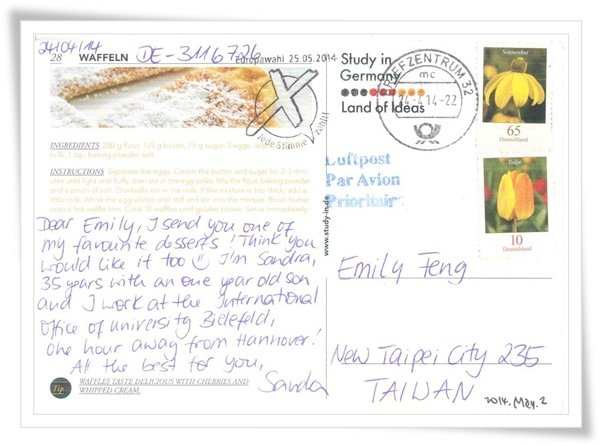 24/04/14
DE-3116726
28 WAFFELN
Europawahl 25.05.2014
Jede Stimme zählt!
Study in
Germany
Land of Ideas
BRIEFZENTRUM 32
mc
-4.14-22
Sonnenhut
65
Deutschland
Tulpe
10
Deutschland
Luftpost
Par Avion
Prioritair
www.study-in.de
INGREDIENTS 250 g flour, 125 g butter, 75 g sugar, 3 eggs,
milk, 1 tsp. baking powder, salt
INSTRUCTIONS Separate the eggs. Cream the butter and sugar for 2-3 min-
utes until light and fluffy, then stir in the egg yolks. Mix the flour, baking powder
and a pinch of salt. Gradually stir in the milk. If the mixture is too thick, add a
little milk. Whisk the egg whites until stiff and stir into the mixture. Brush butter
over a hot waffle iron. Cook 10 waffles until golden brown. Serve immediately.
Dear Emily, I send you one of
my favourite disserts! Think you
would like it too ☺ I'm Sandra,
35 years with an one year old son
and I work at the International
Office of university Bielefeld,
one hour away from Hannover!
All the best for you,
Sandra
Tip
WAFFLES TASTE DELICIOUS WITH CHERRIES AND
WHIPPED CREAM.
Emily Feng
New Taipei City 235
TAIWAN
2014. May. 2